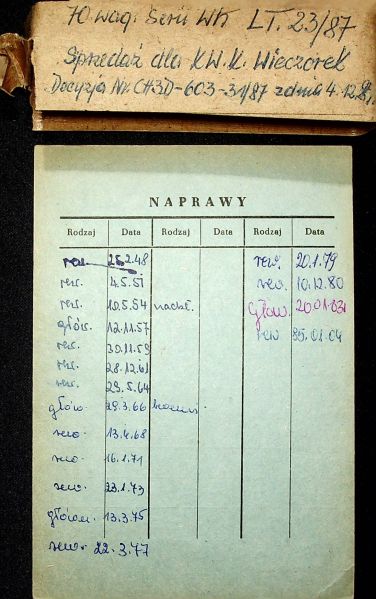 70 wag. Serii Wh LT. 23/87
Sprzedaż dla KW.K. Wieczorek
Decyzja Nr. CH3D-603-31/87 z dnia 4.12.
NAPRAWY
Rodzaj Data Rodzaj Data Rodzaj Data
rew. 2.48 rew. 20.1.79
rew. 4.5.51 rew. 10.12.80
rew. 10.5.54 głow. 20.01.83
głów. 12.11.57 rew 85.01.04
rew. 30.11.59
rew. 28.12.61
rew. 29.5.64
głów. 29.3.66
rew. 13.4.68
rew. 16.1.71
rew. 23.1.73
główn. 13.3.75
rew. 22.3.77